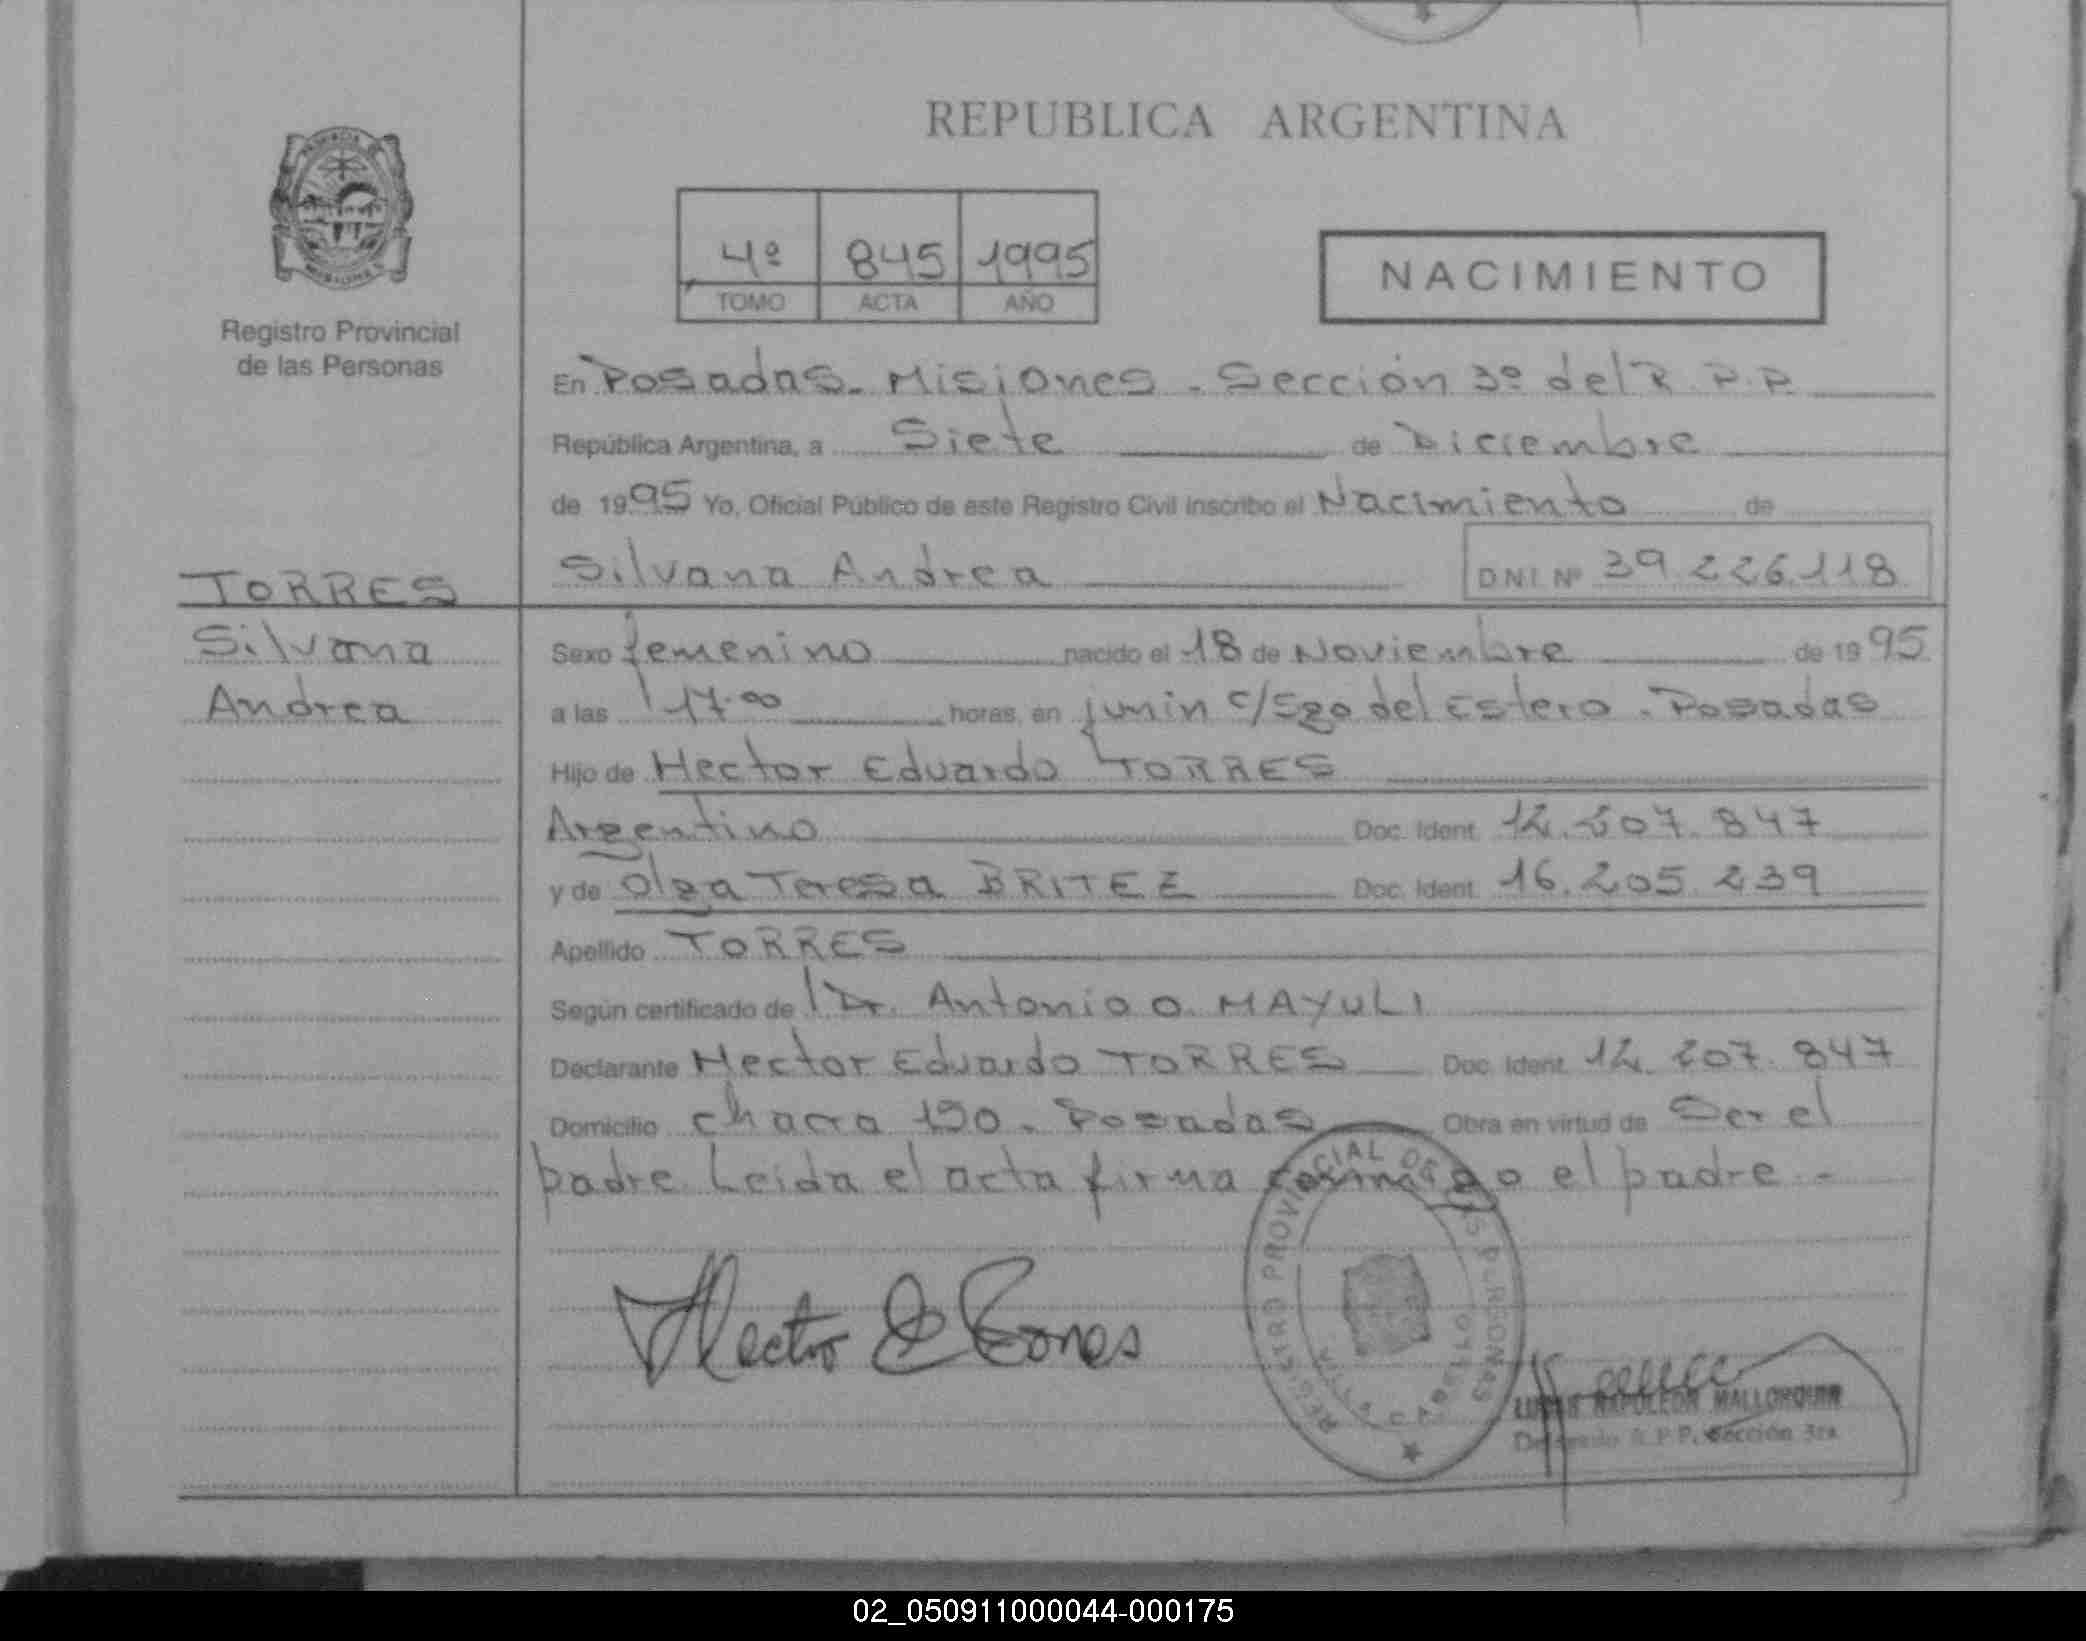 REPUBLICA ARGENTINA
4º 845 1995
TOMO ACTA AÑO
NACIMIENTO
Registro Provincial
de las Personas
En Posadas. Misiones. Sección 3º del R.P.P.
República Argentina, a Siete de Diciembre
de 1995 Yo, Oficial Público de este Registro Civil inscribo el Nacimiento de
Silvana Andrea DNI Nº 39.226.118
TORRES
Silvana
Andrea
Sexo femenino nacido el 18 de Noviembre de 1995
a las 17.00 horas, en junin c/Sgo del Estero. Posadas
Hijo de Hector Eduardo TORRES
Argentino Doc. Ident. 12.207.847
y de Olga Teresa BRITEZ Doc. Ident. 16.205.239
Apellido TORRES
Según certificado de Dr. Antonio O. MAYULI
Declarante Hector Eduardo TORRES Doc. Ident. 12.207.847
Domicilio chacra 190. Posadas Obra en virtud de Ser el
padre. Leida el acta firma conmigo el padre.-
REGISTRO PROVINCIAL DE LAS PERSONAS
Hector E Torres
NAPOLEON MALLORQUIN
Delegado R.P.P. Sección 3ra
02_050911000044-000175